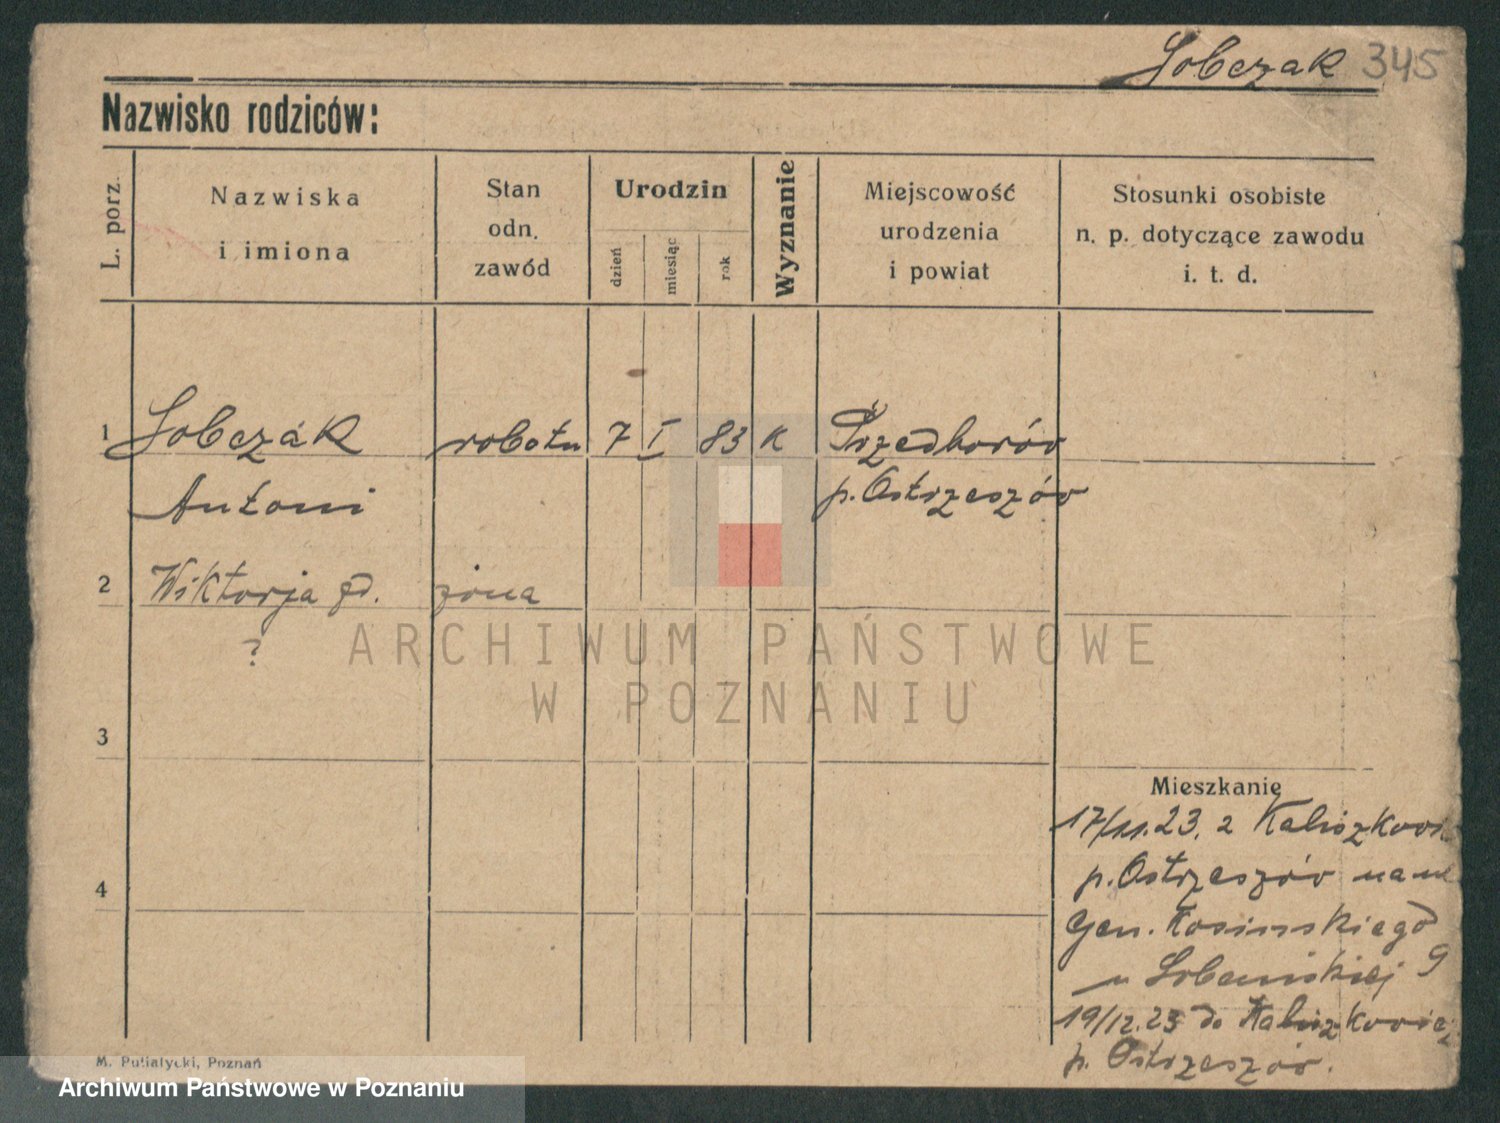 Sobczak 345
Nazwisko rodziców:
L. porz.
Nazwiska
i imiona
Stan
odn.
zawód
Urodzin
dzień
miesiąc
rok
Wyznanie
Miejscowość
urodzenia
i powiat
Stosunki osobiste
n. p. dotyczące zawodu
i. t. d.
1 Sobczak robotn 7 I 83 K Przedborów
Antoni p. Ostrzeszów
2 Wiktorja żona
?
ARCHIWUM PAŃSTWOWE
W POZNANIU
3
Mieszkanie
17/11.23. z
4 p. Ostrzeszów na ul
Gen. Kosinskiego 9
u
19/12.23 do
p. Ostrzeszów.
M. Putiatycki, Poznań
Archiwum Państwowe w Poznaniu